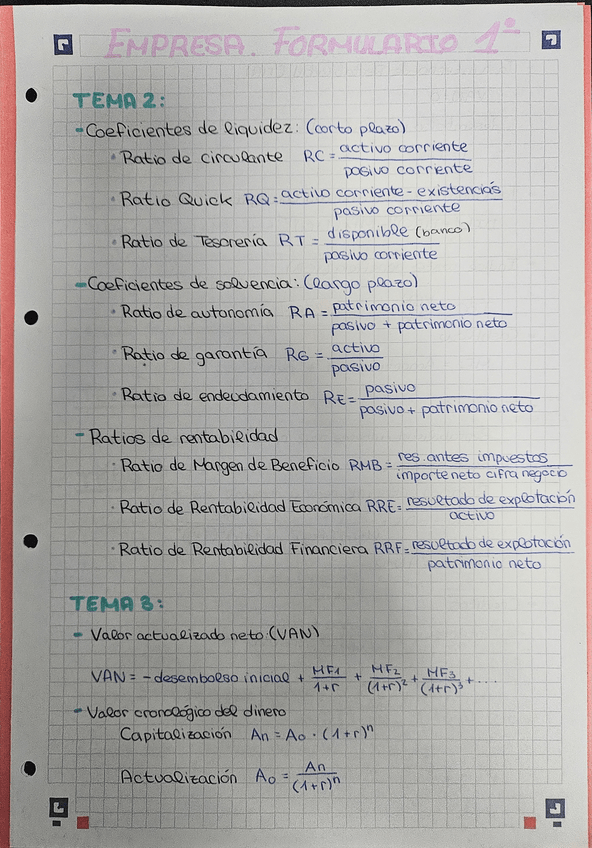 EMPRESA. FORMULARIO 1º
TEMA 2:
- Coeficientes de liquidez: (corto plazo)
· Ratio de circulante RC = activo corriente / pasivo corriente
· Ratio Quick RQ = activo corriente - existencias / pasivo corriente
· Ratio de Tesorería RT = disponible (banco) / pasivo corriente
- Coeficientes de solvencia: (largo plazo)
· Ratio de autonomía RA = patrimonio neto / pasivo + patrimonio neto
· Ratio de garantía RG = activo / pasivo
· Ratio de endeudamiento RE = pasivo / pasivo + patrimonio neto
- Ratios de rentabilidad
· Ratio de Margen de Beneficio RMB = res. antes impuestos / importe neto cifra negocio
· Ratio de Rentabilidad Económica RRE = resultado de explotación / activo
· Ratio de Rentabilidad Financiera RRF = resultado de explotación / patrimonio neto
TEMA 3:
- Valor actualizado neto (VAN)
VAN = - desembolso inicial + MF1 / 1+r + MF2 / (1+r)² + MF3 / (1+r)³ + ...
- Valor cronológico del dinero
Capitalización An = A0 · (1+r)ⁿ
Actualización A0 = An / (1+r)ⁿ